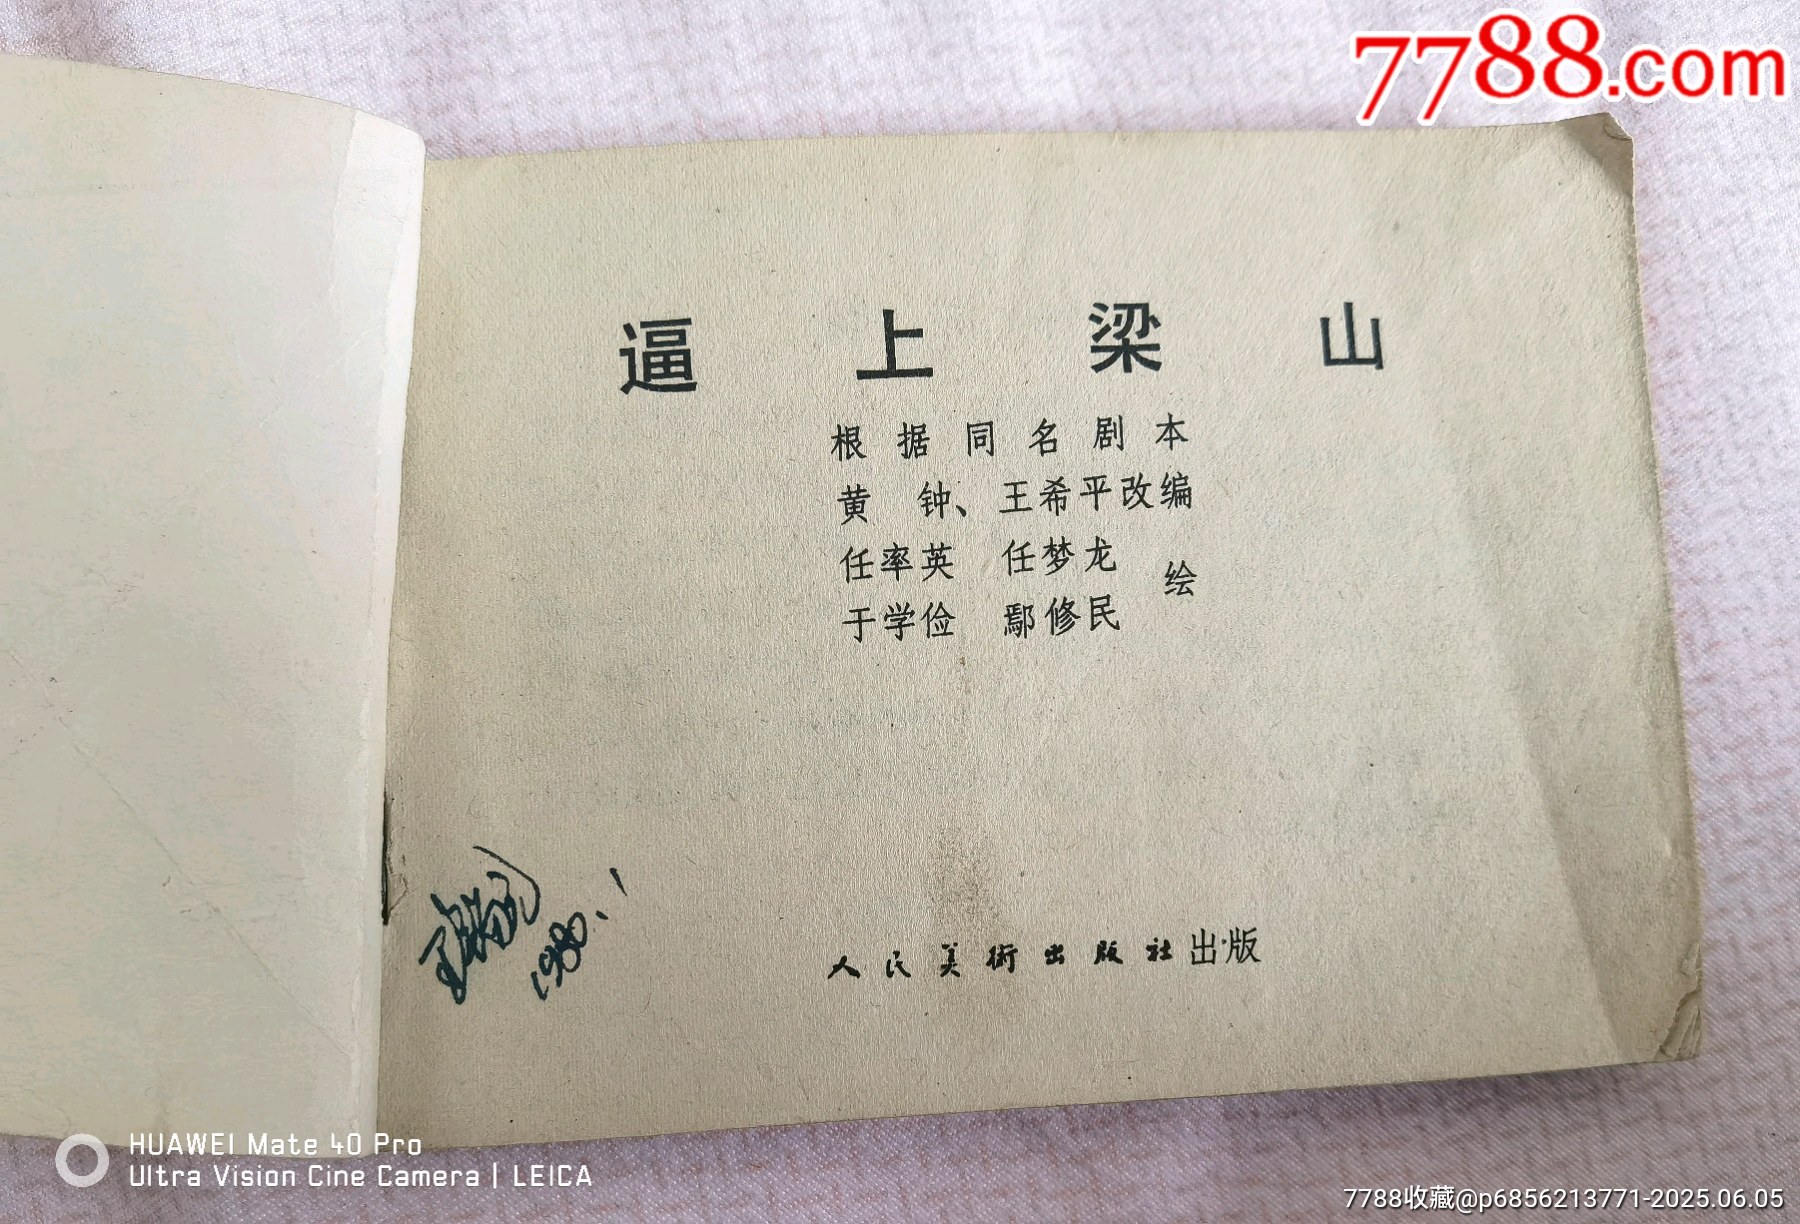 7788.com
逼上梁山
根据同名剧本
黄 钟、王希平改编
任率英 任梦龙
于学俭 鄢修民 绘
1980.1
人民美術出版社出版
HUAWEI Mate 40 Pro
Ultra Vision Cine Camera | LEICA
7788收藏@p6856213771-2025.06.05